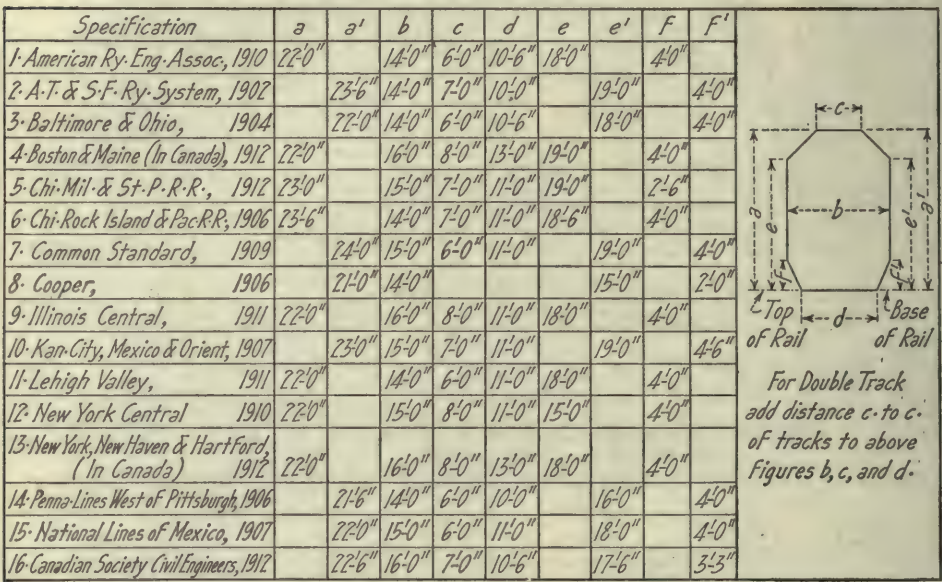 Specification a a' b c d e e' F F'
1. American Ry. Eng. Assoc., 1910 22'-0" 14'-0" 6'-0" 10'-6" 18'-0" 4'-0"
2. A.T. & S.F. Ry. System, 1902 23'-6" 14'-0" 7'-0" 10'-0" 19'-0" 4'-0"
3. Baltimore & Ohio, 1904 22'-0" 14'-0" 6'-0" 10'-6" 18'-0" 4'-0"
4. Boston & Maine (In Canada), 1912 22'-0" 16'-0" 8'-0" 13'-0" 19'-0" 4'-0"
5. Chi. Mil. & St. P. R.R., 1912 23'-0" 15'-0" 7'-0" 11'-0" 19'-0" 2'-6"
6. Chi. Rock Island & Pac. R.R. 1906 23'-6" 14'-0" 7'-0" 11'-0" 18'-6" 4'-0"
7. Common Standard, 1909 24'-0" 15'-0" 6'-0" 11'-0" 19'-0" 4'-0"
8. Cooper, 1906 21'-0" 14'-0" 15'-0" 2'-0"
9. Illinois Central, 1911 22'-0" 16'-0" 8'-0" 11'-0" 18'-0" 4'-0"
10. Kan. City, Mexico & Orient, 1907 23'-0" 15'-0" 7'-0" 11'-0" 19'-0" 4'-6"
11. Lehigh Valley, 1911 22'-0" 14'-0" 6'-0" 11'-0" 18'-0" 4'-0"
12. New York Central 1910 22'-0" 15'-0" 8'-0" 11'-0" 15'-0" 4'-0"
13. New York, New Haven & Hartford,
(In Canada) 1912 22'-0" 16'-0" 8'-0" 13'-0" 18'-0" 4'-0"
14. Penna. Lines West of Pittsburgh, 1906 21'-6" 14'-0" 6'-0" 10'-0" 16'-0" 4'-0"
15. National Lines of Mexico, 1907 22'-0" 15'-0" 6'-0" 11'-0" 18'-0" 4'-0"
16. Canadian Society Civil Engineers, 1912 22'-6" 16'-0" 7'-0" 10'-6" 17'-6" 3'-3"
c
a e b e' a'
F F'
d
Top
of Rail
Base
of Rail
For Double Track
add distance c. to c.
of tracks to above
Figures b, c, and d.